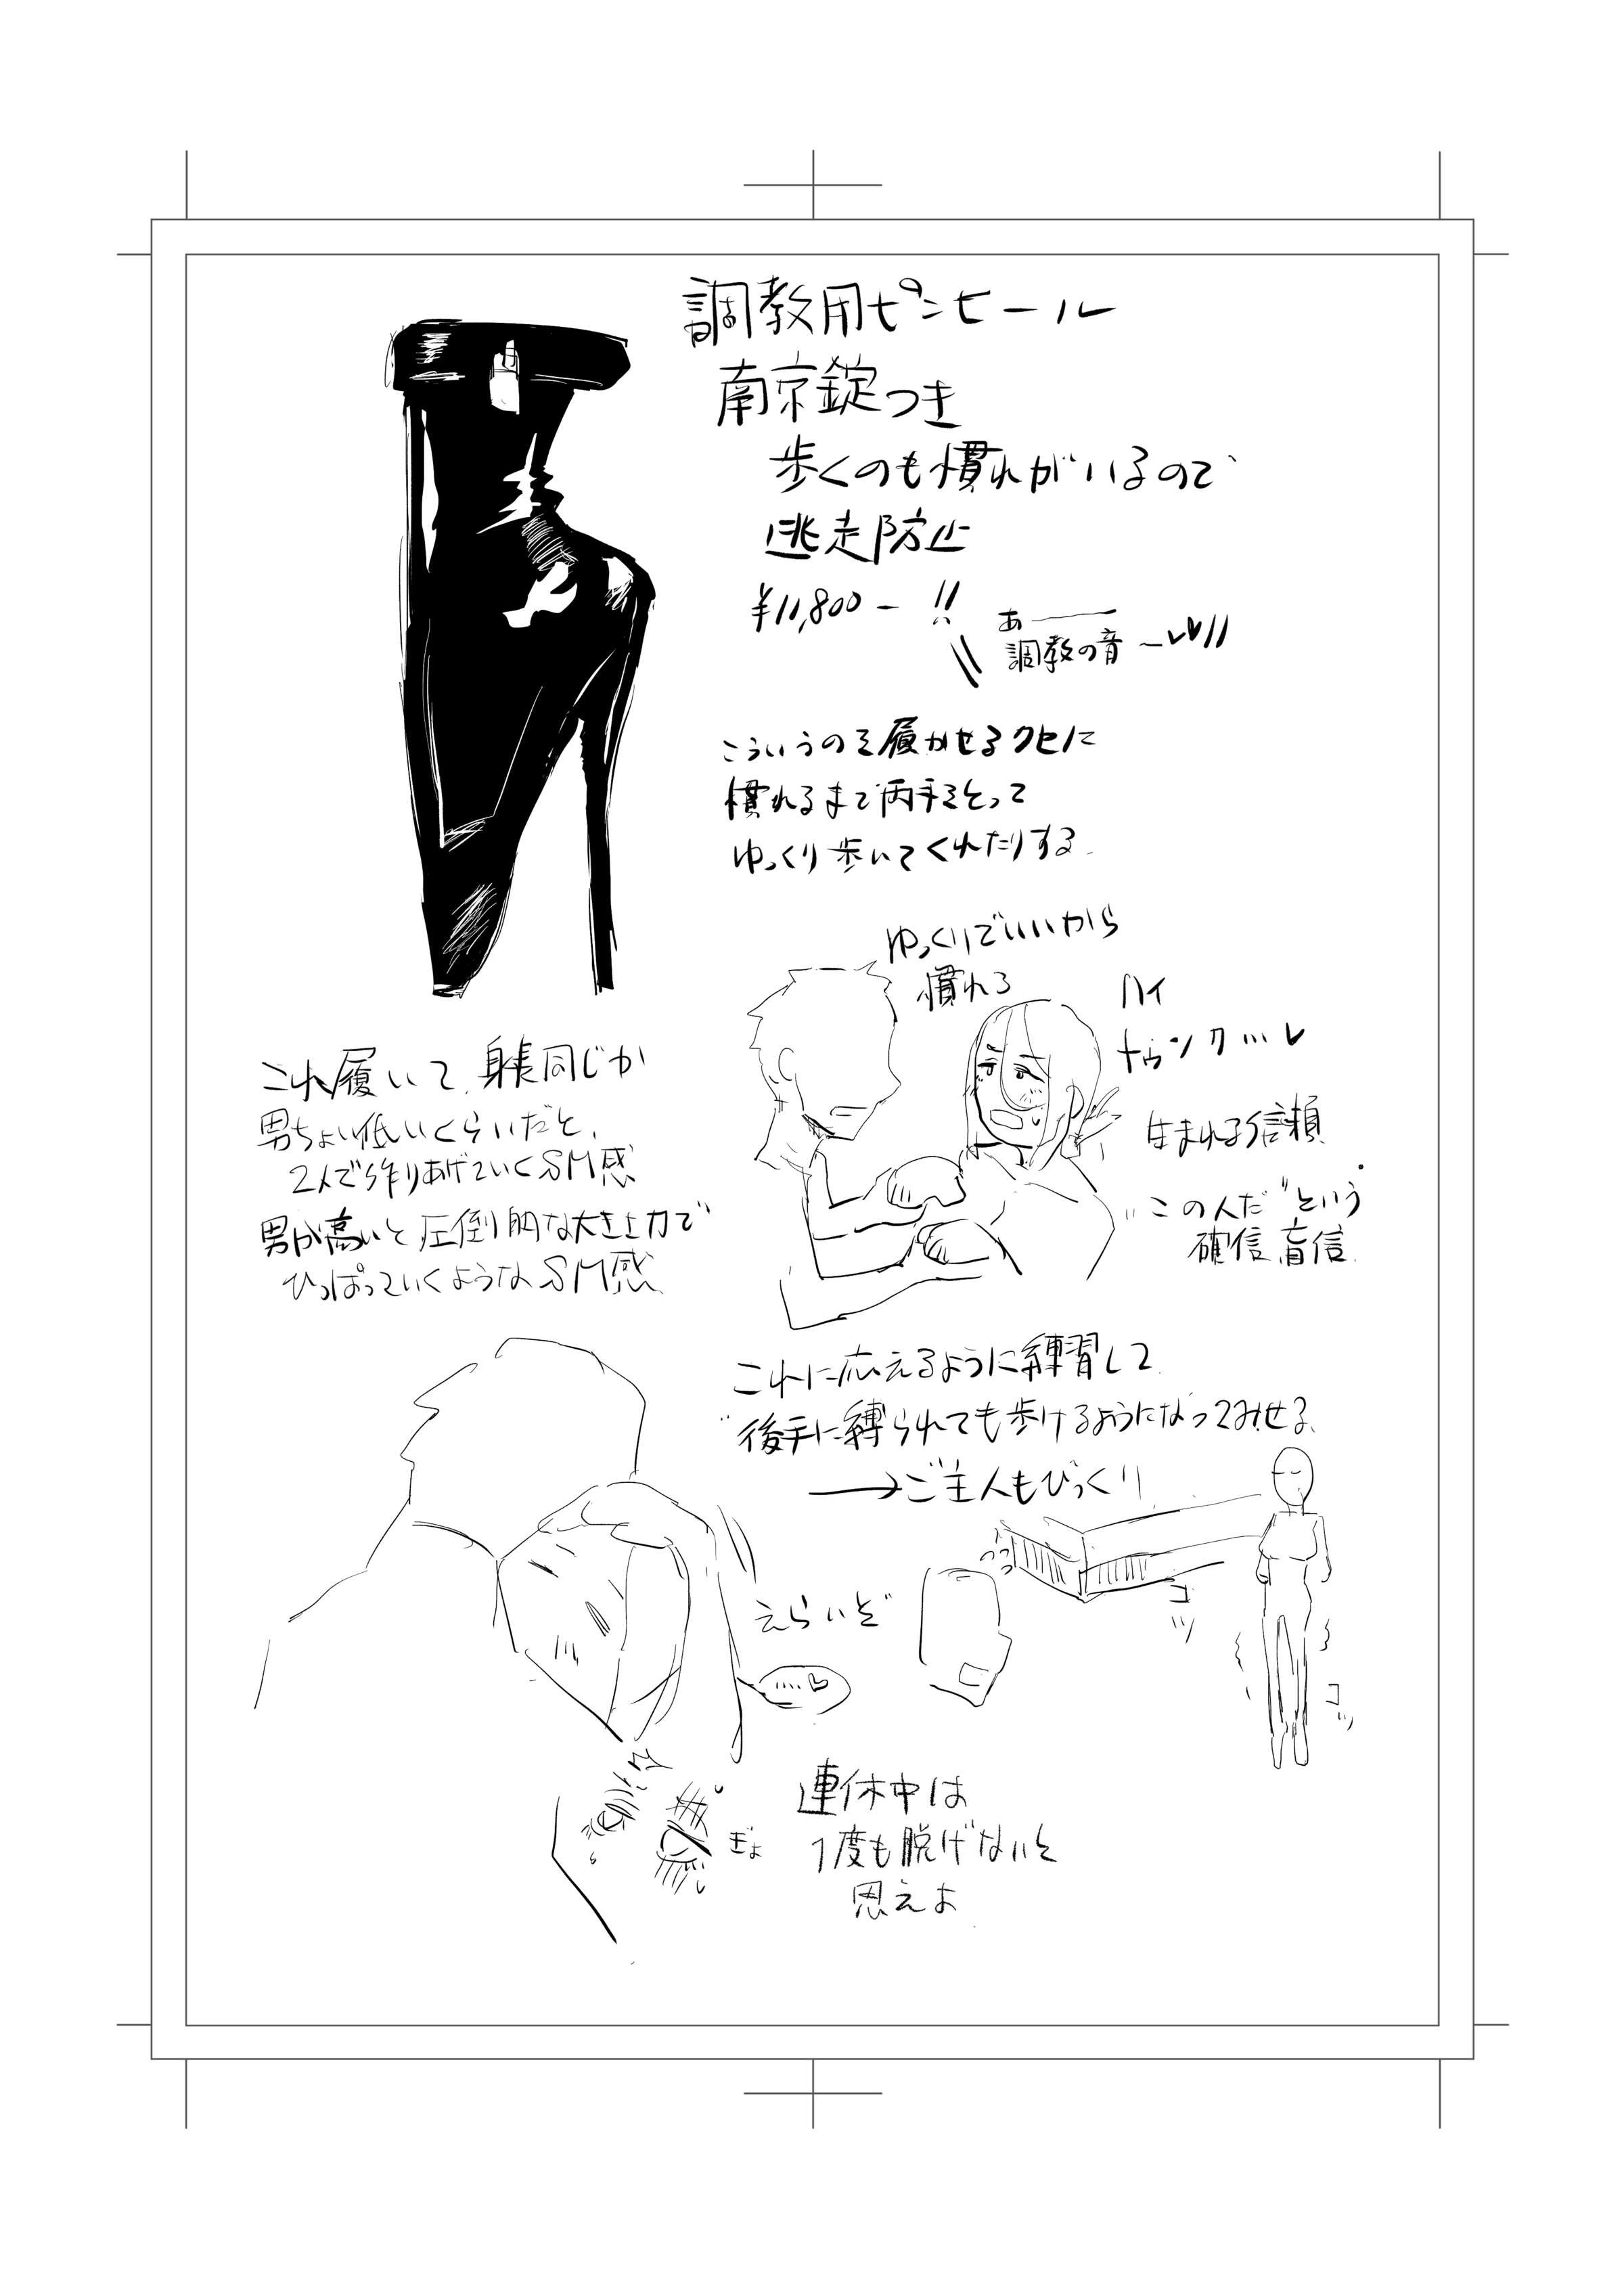 調教用ピンヒール
南京錠つき
歩くのも慣れがいるので
逃走防止
¥11,800-!!
あー
調教の音〜♥♥!!
こういうのを履かせるクセに
慣れるまで両手をとって
ゆっくり歩いてくれたりする.
ゆっくりでいいから
慣れろ
ハイ
トゥンク…♥
生まれる信頼.
"この人だ"という
確信、盲信.
これ履いて、身長同じか
男ちょい低いくらいだと、
2人で作りあげていくSM感
男が高いと圧倒的な大きさ力で
ひっぱっていくようなSM感
これに応えるように練習して
後手に縛られても歩けるようになってみせる、
→ご主人もびっくり
コツ
コツ
えらいぞ
....♡
ぎょ
連休中は
1度も脱げないと
思えよ